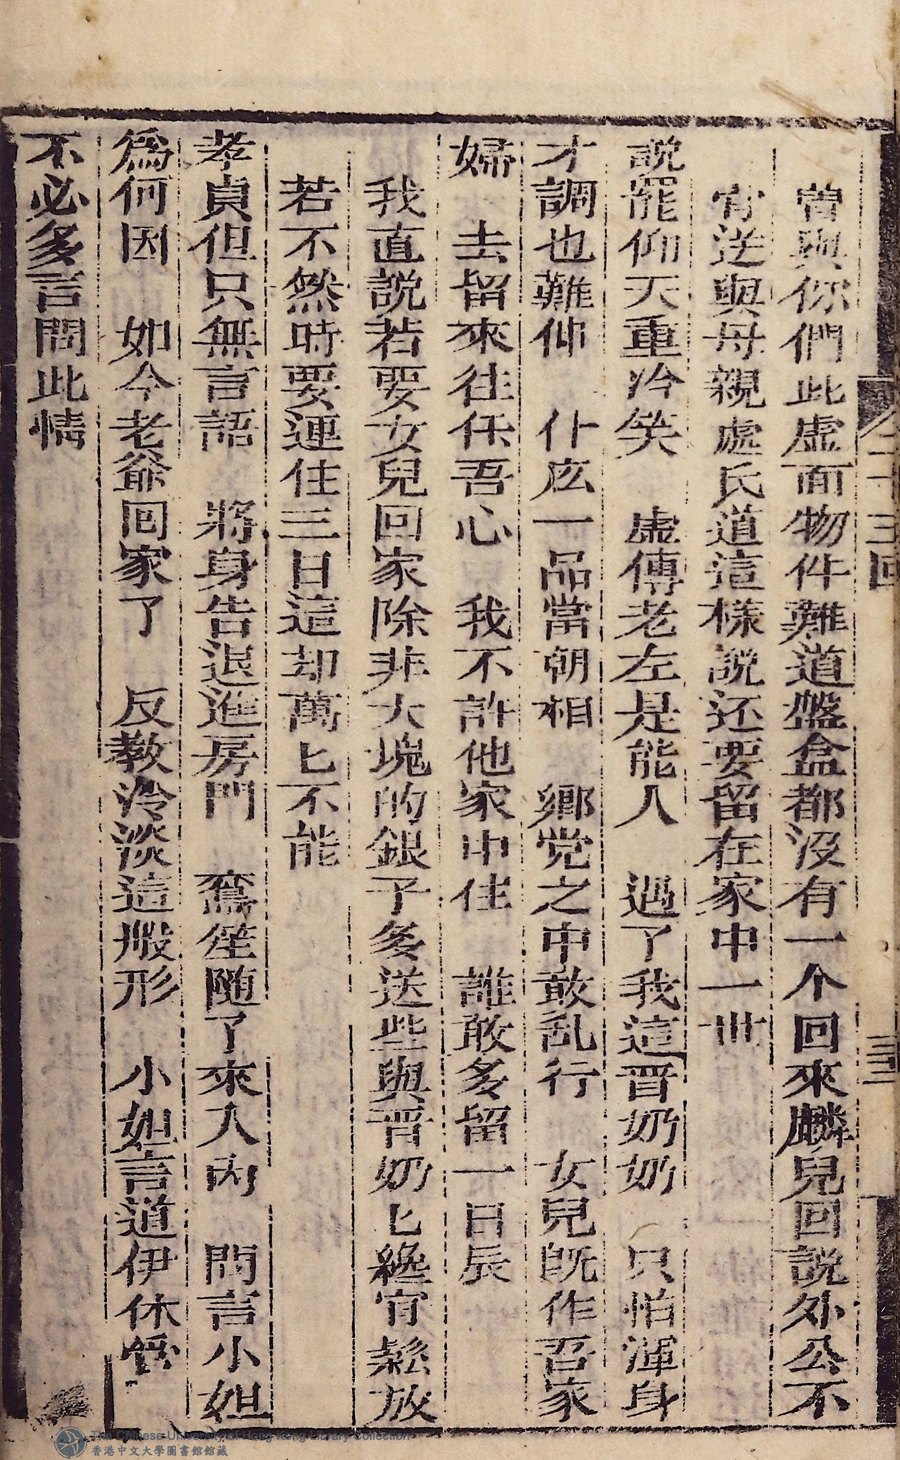 二十三回
三
曾與你們此虛面物件難道盤盒都沒有一个回來麟兒回說外公不
肯送與母親處氏道這樣說还要留在家中一世
說罷仰天重冷笑　虛傳老左是能人　過了我這晋奶奶　只怕渾身
才調也難伸　什庅一品當朝相　鄉党之中敢乱行　女兒旣作吾家
婦　去留來往任吾心　我不許他家中住　誰敢多留一日辰
我直說若要女兒回家除非大塊的銀子多送些與晋奶匕纔肯鬆放
若不然時要連住三日這却萬匕不能
孝貞但只無言語　將身告退進房門　鶱笙随了來入內　問言小姐
爲何因　如今老爺回家了　反教冷淡這般形　小姐言道伊休管
不必多言問此情
The Chinese University of Hong Kong Library Collection
香港中文大學圖書館館藏